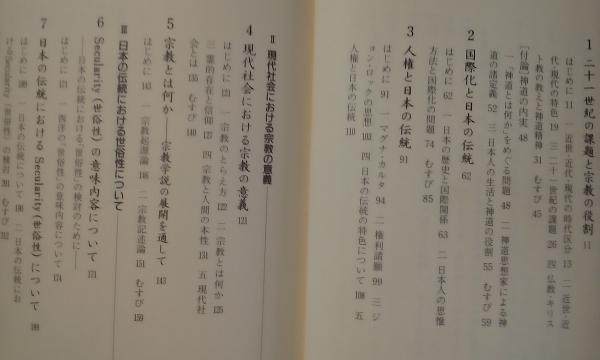 1 二十一世紀の課題と宗教の役割 11
はじめに 11 一 近世・近代・現代の時代区分 13 二 近世・近
代・現代の特色 19 三 二十一世紀の課題 26 四 仏教・キリス
ト教の教えと神道精神 31 むすび 45
〔付論〕神道の内実 48
一 「神道とは何か」をめぐる問題 48 二 神道思想家による神
道の諸定義 52 三 日本人の生活と神道の役割 55 むすび 59
2 国際化と日本の伝統 62
はじめに 62 一 日本の歴史と国際関係 63 二 日本人の思惟
方法と国際化の問題 74 むすび 85
3 人権と日本の伝統 91
はじめに 91 一 マグナ・カルタ 94 二 権利請願 99 三 ジ
ョン・ロックの思想 103 四 日本の伝統の特色について 108 五
人権と日本の伝統 110
Ⅱ 現代社会における宗教の意義
4 現代社会における宗教の意義 121
はじめに 121 一 宗教のとらえ方 122 二 宗教とは何か 125
三 霊的存在と信仰 127 四 宗教と人間の本性 131 五 現代社
会とは 135 むすび 140
5 宗教とは何か——宗教学説の展開を通して 143
はじめに 143 一 宗教起源論 146 二 宗教記述論 151 むすび 159
Ⅲ 日本の伝統における世俗性について
6 Secularity（世俗性）の意味内容について 171
——日本の伝統における「世俗性」の検討のために——
はじめに 171 一 西洋の「世俗性」の意味内容について 174
7 日本の伝統における Secularity（世俗性）について 189
はじめに 189 一 日本の伝統について 190 二 日本の伝統にお
ける Secularity「世俗性」の検討 201 むすび 212